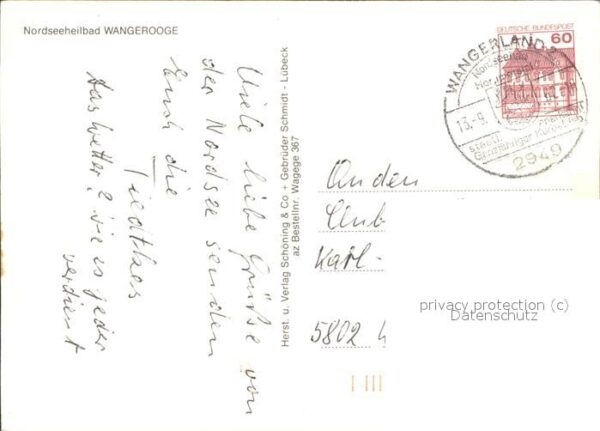 Nordseeheilbad WANGEROOGE
Viele liebe Grüße von
der Nordsee senden
Euch die
Tiedtkes
Das Wetter? wie es jeder
verdient
Herst. u. Verlag Schöning & Co + Gebrüder Schmidt - Lübeck
az Bestellnr. Wagege 367
DEUTSCHE BUNDESPOST
60
WANGERLAND 2
Nordseebad
13.-9.
staatl.
2949
An den
Club
Karl-
5802
privacy protection (c)
Datenschutz